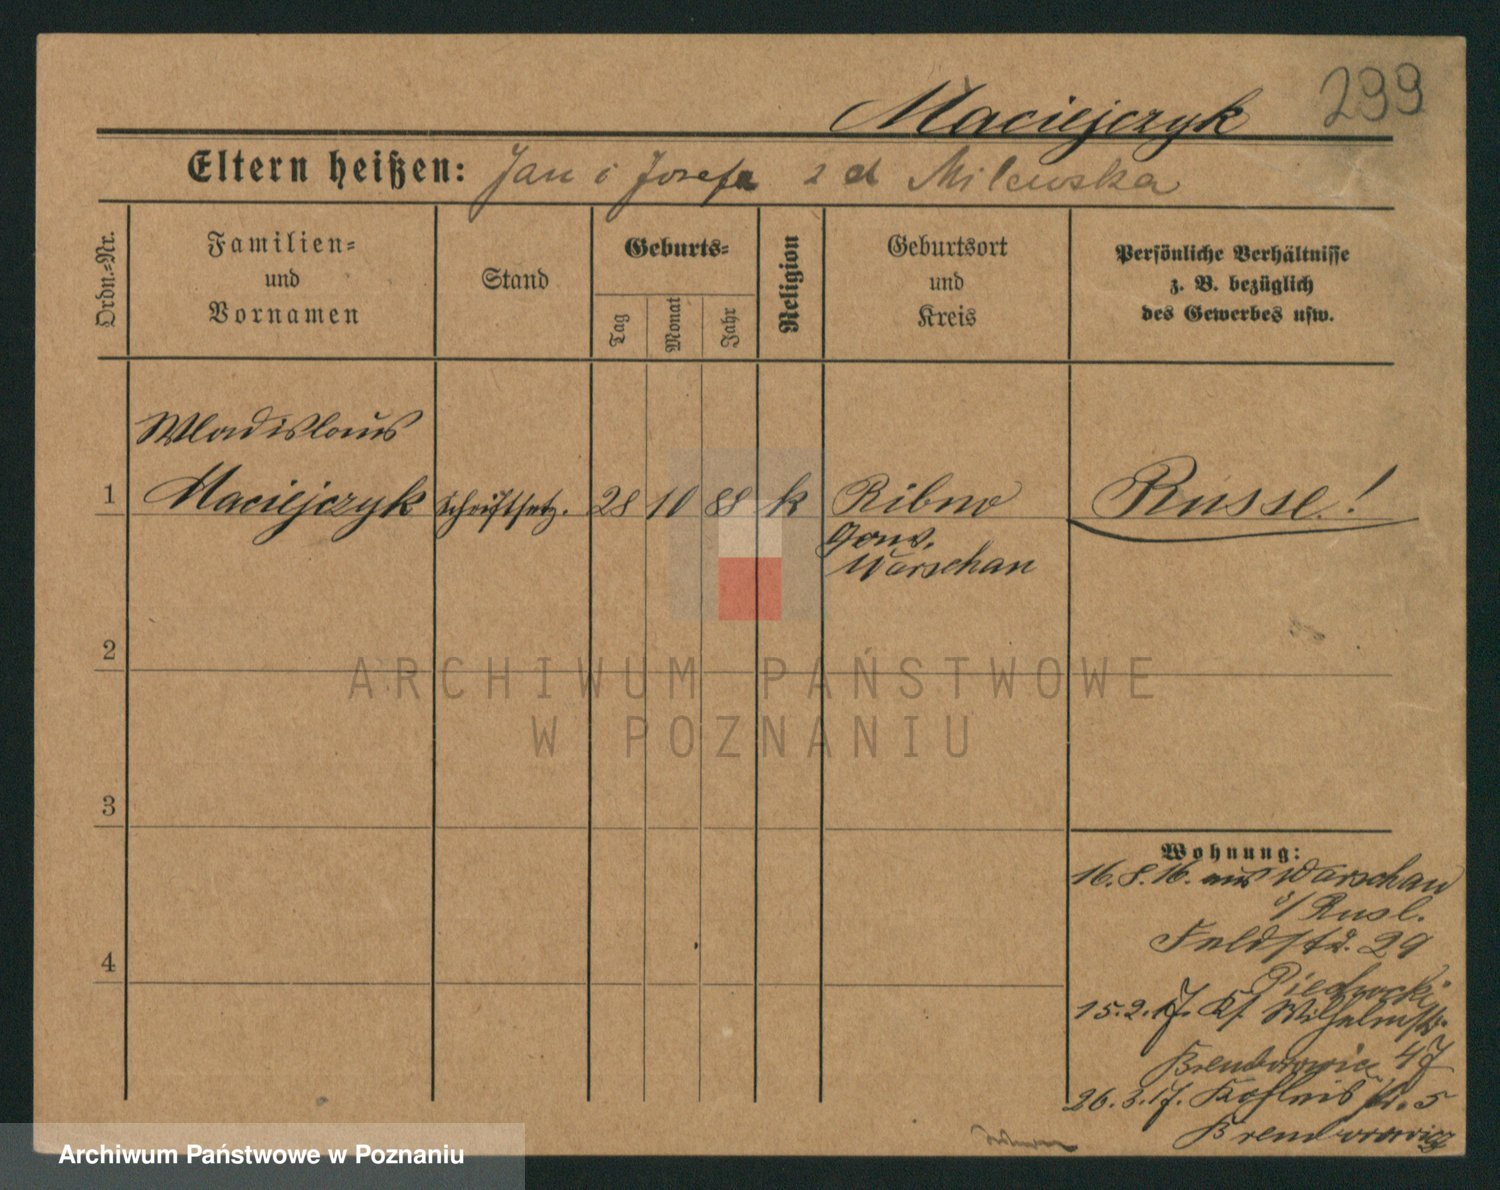 299
Maciejczyk
Eltern heißen: Jan i Józefa z d Milewska
Ordn.-Nr.
Familien-
und
Vornamen
Stand
Geburts-
Tag
Monat
Jahr
Religion
Geburtsort
und
Kreis
Persönliche Verhältnisse
z. B. bezüglich
des Gewerbes usw.
Wladislaus
1 Maciejczyk Schriftsetz. 28 10 88 k Ribno Russe!
Gouv.
Warschau
2
ARCHIWUM PAŃSTWOWE
W POZNANIU
3
Wohnung:
16.8.16. aus Warschau
i/Rusl.
4
Feldstr. 29
15.2.17. Wilhelmstr.
47
26.3.17. 5
Archiwum Państwowe w Poznaniu